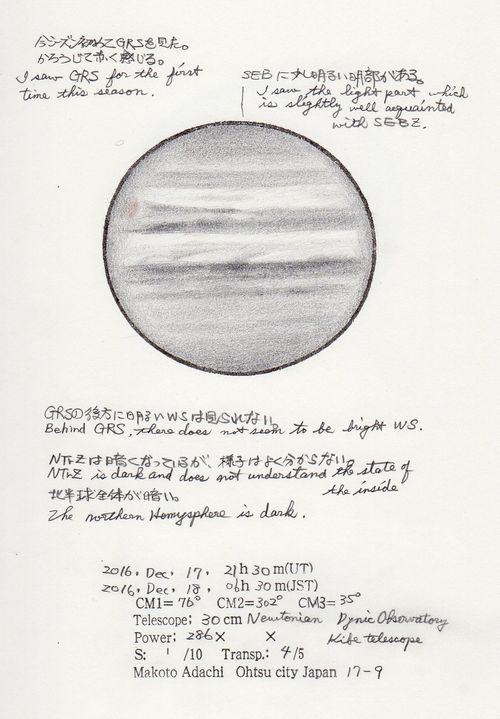 今シーズン初めてGRSを見た。
かろうじて赤く感じる。
I saw GRS for the first
time this season.
SEBに少し明るい明部がある。
I saw the light part which
is slightly well acquainted
with SEBZ.
GRSの後方に明るいWSは見られない。
Behind GRS, there does not seem to be bright WS.
NTrZは暗くなっているが、様子はよく分からない。
NTrZ is dark and does not understand the state of
the inside
北半球全体が暗い。
The northern Homysphere is dark.
2016, Dec, 17, 21h 30m(UT)
2016, Dec, 18, 06h 30m(JST)
CM1= 76° CM2= 302° CM3= 35°
Telescope; 30cm Newtonian Dynic Observatory
Power; 286× × Kibe telescope
S: 1 /10 Transp.; 4/5
Makoto Adachi Ohtsu city Japan 17-9